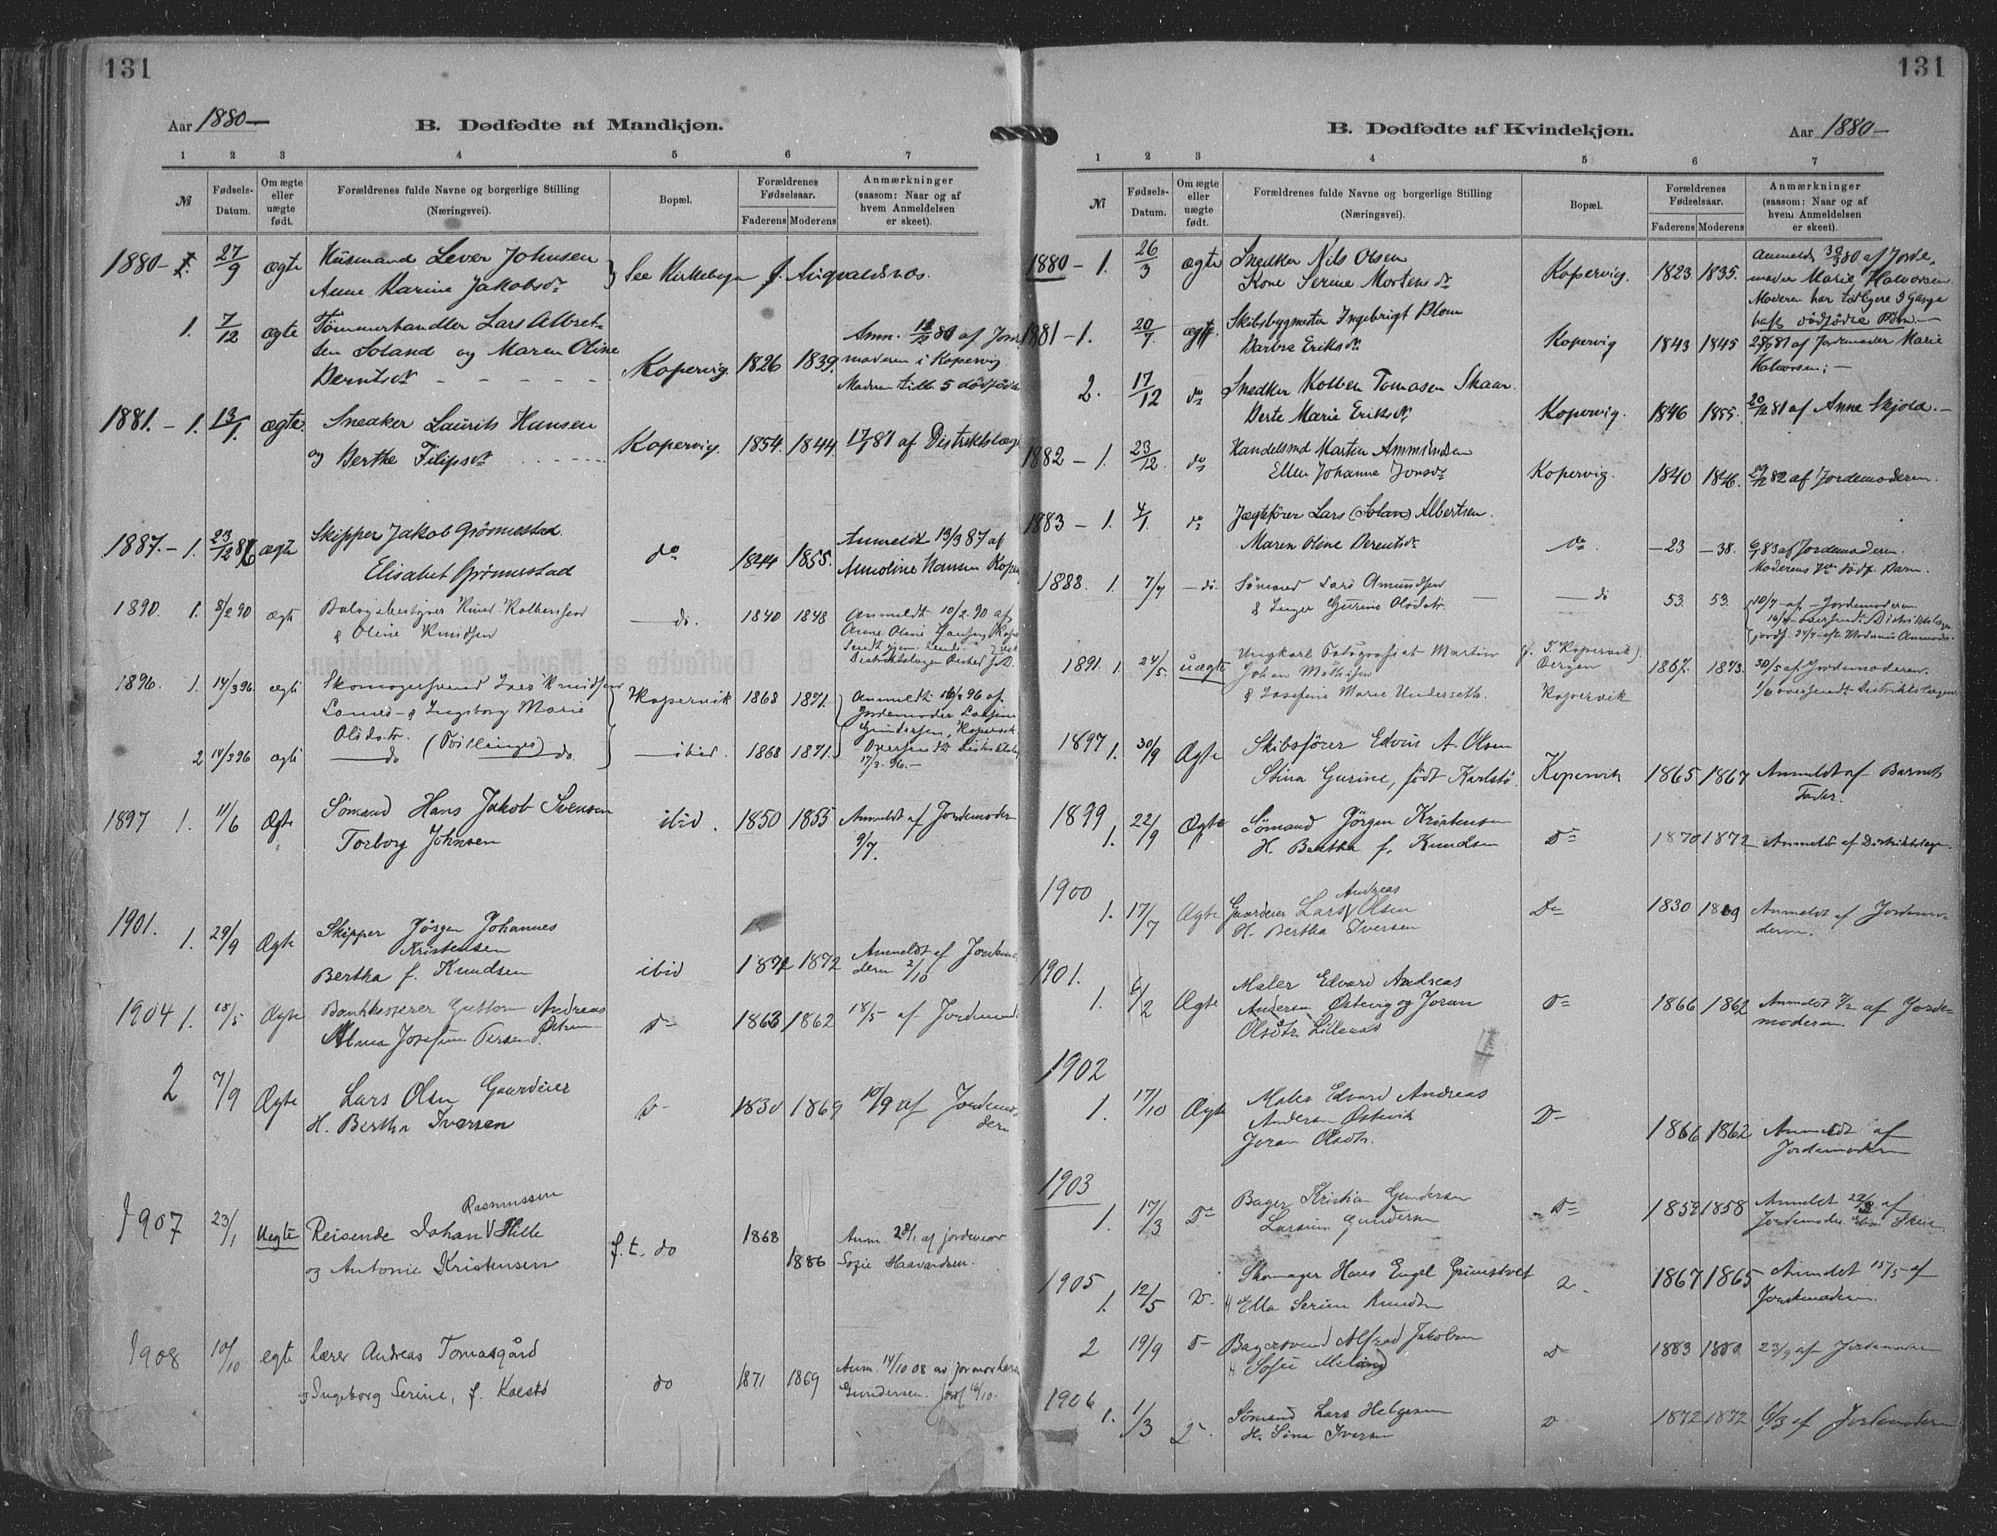 131
Aar 1880-
B. Dødfødte af Mandkjøn.
1 2 3 4 5 6 7
№
Fødsels-
Datum.
Om ægte
eller
uægte
født.
Forældrenes fulde Navne og borgerlige Stilling
(Næringsvei).
Bopæl.
Forældrenes
Fødselsaar.
Faderens Moderens
Anmærkninger
(saasom: Naar og af
hvem Anmeldelsen
er skeet).
1880- 1. 27/9 ægte Husmand Lever Johnsen
Anne Karine Jakobsdr } See Kirkebogen f. Augvaldsnes.
1. 7/12 ægte Tømmerhandler Lars Albret-
sen Soland og Maren Oline
Berntsdr - - - - - Kopervig 1826 1839.
Anm. 80 af Jorde
moderen i Kopervig
Moderen tidl. 5 dødfødte
1881. - 1. 13/1. ægte. Snedker Laurits Hansen
og Berthe Filipsdr Kopervig. 1854. 1844. 17/1 81 af Distriktslæge
1887. - 1. 23/12 86 ægte Skipper Jakob Grønnestad
Elisabet Grønnestad do 1844 1855.
Anmeldt 13/3 87 af
Annoline Hansen Koper
1890. 1. 8/2 90 ægte Knud Kolbensen
& Oline Knudsen - do. 1840 1848
Anmeldt 10/2. 90 af
Anne Oline Hansen, Koper
1896. 1. 14/3 96. ægte Skomagersvend Lars Knudsen
Lannes - & Ingeborg Marie
Olsdtr. Kopervik 1868 1871.
Anmeldt 16/3 96 af
Jordemoder Larsine
Gundersen, Kopervik
2 14/3 96 ægte do (Tvillinger) do. ibid. 1868 1871.
Oversendt Distriktslæge
17/3. 96. -
1897 1. 11/6 Ægte Sømand Hans Jakob Svensen
Torborg Johnsen ibid. 1850 1855
Anmeldt af Jordemoder
9/7.
1901. 1. 29/9 Ægte Skipper Jørgen Johannes
Kristensen
Bertha f. Knudsen ibid 1872 1872
Anmeldt af Jordemo
deren 2/10
1904 1. 18/5 Ægte Bankkasserer Guttorm Andreas
Alma Josefine Persen D- 1863 1862 18/5 af Jordemod
2 7/9 Ægte Lars Olsen Gaardeier
H. Bertha Iversen D- 1830 1869 10/9 af Jordemo
deren
1907 23/1 Uegte Rasmussen
Reisende Johan V Hille
og Antonie Kristensen f. t. do 1868
1886
Anm. 28/1 af jordemor
Sofie Haavardsen.
1908 10/10 egte Lærer Andreas Tomasgård
og Ingeborg Serine, f. Kolstö do 1871 1869
Anm. 14/10 08 av jormor
Gundersen. 16/10.
131
B. Dødfødte af Kvindekjøn.
Aar 1880-
1 2 3 4 5 6 7
№
Fødsels-
Datum.
Om ægte
eller
uægte
født.
Forældrenes fulde Navne og borgerlige Stilling
(Næringsvei).
Bopæl.
Forældrenes
Fødselsaar.
Faderens Moderens
Anmærkninger
(saasom: Naar og af
hvem Anmeldelsen
er skeet).
1880 - 1. 26/3 ægte Snedker Nils Olsen
Kone Serine Mortensdr Kopervig. 1823 1835.
Anmeldt 30/3 80 af Jorde-
moder Marie Halvorsen.
Moderen har tidligere 3 Gange
havt dødfødte Børn. -
1881 - 1. 20/7. ægte Skibsbygmester Ingebrigt Blom
Barbra Eriksdr Kopervig 1843 1845
81 af Jordemoder Marie
Halvorsen; -
2. 17/12 do Snedker Kolben Tomasen Skaar.
Berte Marie Eriksdr Kopervig. 1846 1855. 20/12 81 af Anne Skjold. -
1882 - 1. 23/12. do Handelsmd Martin Ammundsen
Ellen Johanne Jonsdr Kopervig. 1840 1846. 29/12 82 af Jordemoderen.
1883 - 1. 4/1. do Jægtefører Lars (Solan) Albertsen.
Maren Oline Berentsdr do. - 23 - 38. 6/1 83 af Jordemoderen.
Moderens 7de dødf. Barn.
1888. 1. 7/7 - do. Sømand Lars Amundsen
& Inger Gurine Olsdtr. - do 53. 53. 10/7 af Jordemoderen.
1891. 1. 24/5. uægte Ungkarl Fotografist Martin
Johan Mathisen
& Josefine Marie Underseth. (f. T. Kopervik)
Bergen
Kopervik 1867. 1873. 30/5 af Jordemoderen.
1/6 oversendt Distriktslægen.
1897 1. 30/9 Ægte Skibsfører Edvin A. Olsen
Stina Gurine, født Karlstø. Kopervik 1865 1867 Anmeldt af Barnets
Fader.
1899
1. 22/9 Ægte Sømand Jörgen Kristensen
H. Bertha f. Knudsen Do 1870 1872 Anmeldt af Distriktslæge
1900
1. 17/7 Ægte Andreas
Gaardeier Lars V Olsen
H. Bertha Iversen Do 1830 1869 Anmeldt af Jordemo-
deren.
1901.
1. 6/2 Ægte Maler Edvard Andreas
Andersen Østevig og Joran
Olsdtr. Lillenæs Do 1866 1862 Anmeldt 7/2 af Jorde-
moderen.
1902
1. 17/10 Ægte Maler Edvard Andreas
Andersen Østevik
Joran Olsdtr. D- 1866 1862 Anmeldt af
Jordemoderen
1903
1. 17/3 Do Bager Kristian Gundersen
Larsine Gundersen Do 1859 1858 Anmeldt 22/3 af
Jordemoder Skeie
1905
1. 12/5 D- Skomager Hans Engel Grimstvet
H Ella Serine Knudsen D. 1867 1865 Anmeldt 15/5 af
Jordemoderen.
2 19/9 D- Bagersvend Alfred Jakobsen
H Sofie Meland D- 1883 1880. 23/9 af Jordemoderen
1906
1. 1/3 D. Sømand Lars Helgesen
H. Sina Iversen D 1872 1872 6/3 af Jordemoderen